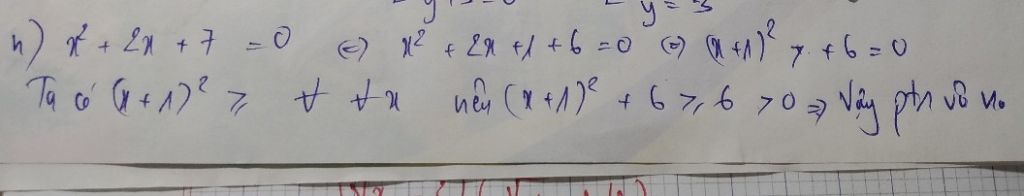 y = 3
h) x² + 2x + 7 = 0 ⇔ x² + 2x + 1 + 6 = 0 ⇔ (x + 1)² + 6 = 0
Ta có (x + 1)² ≥ ∀ ∀x nên (x + 1)² + 6 ≥ 6 > 0 ⇒ Vậy ptr vô no